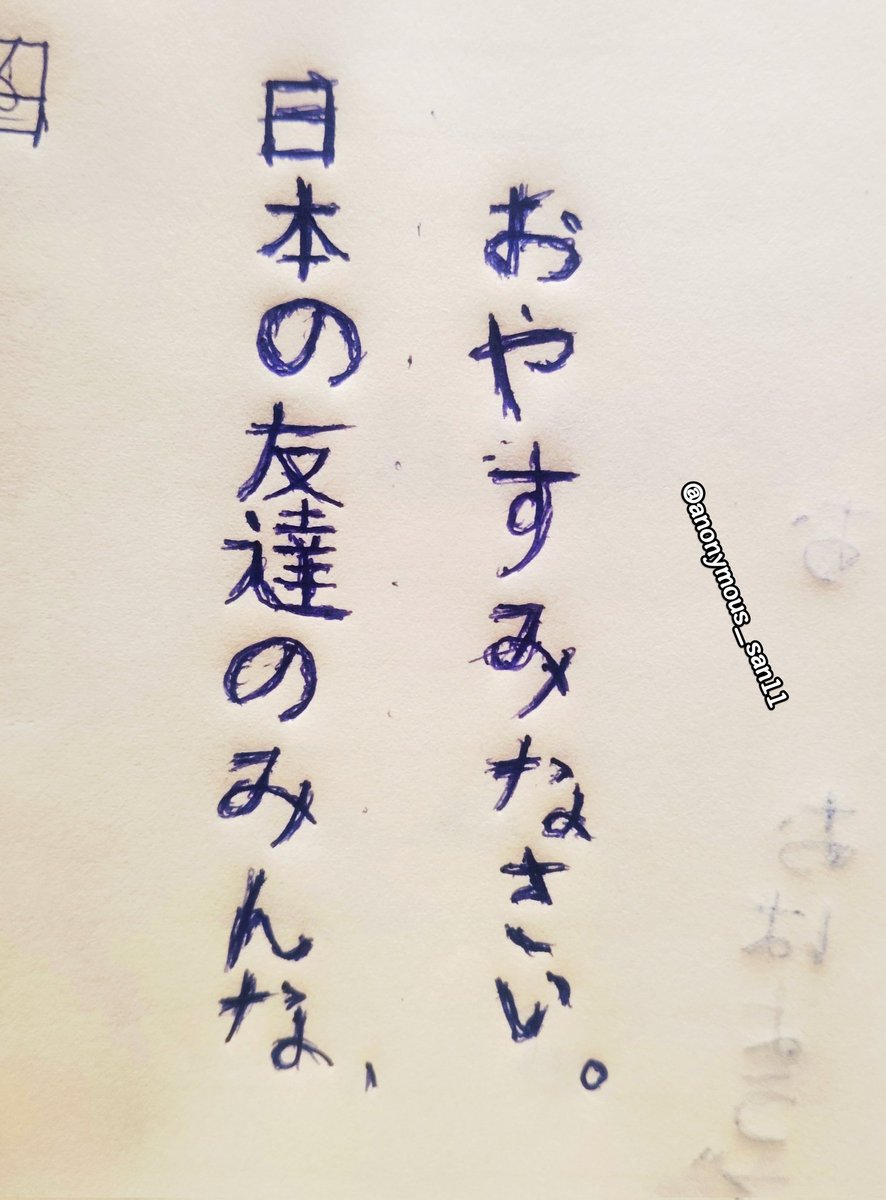 日本の友達のみんな、
おやすみなさい。
@anonymous_san11